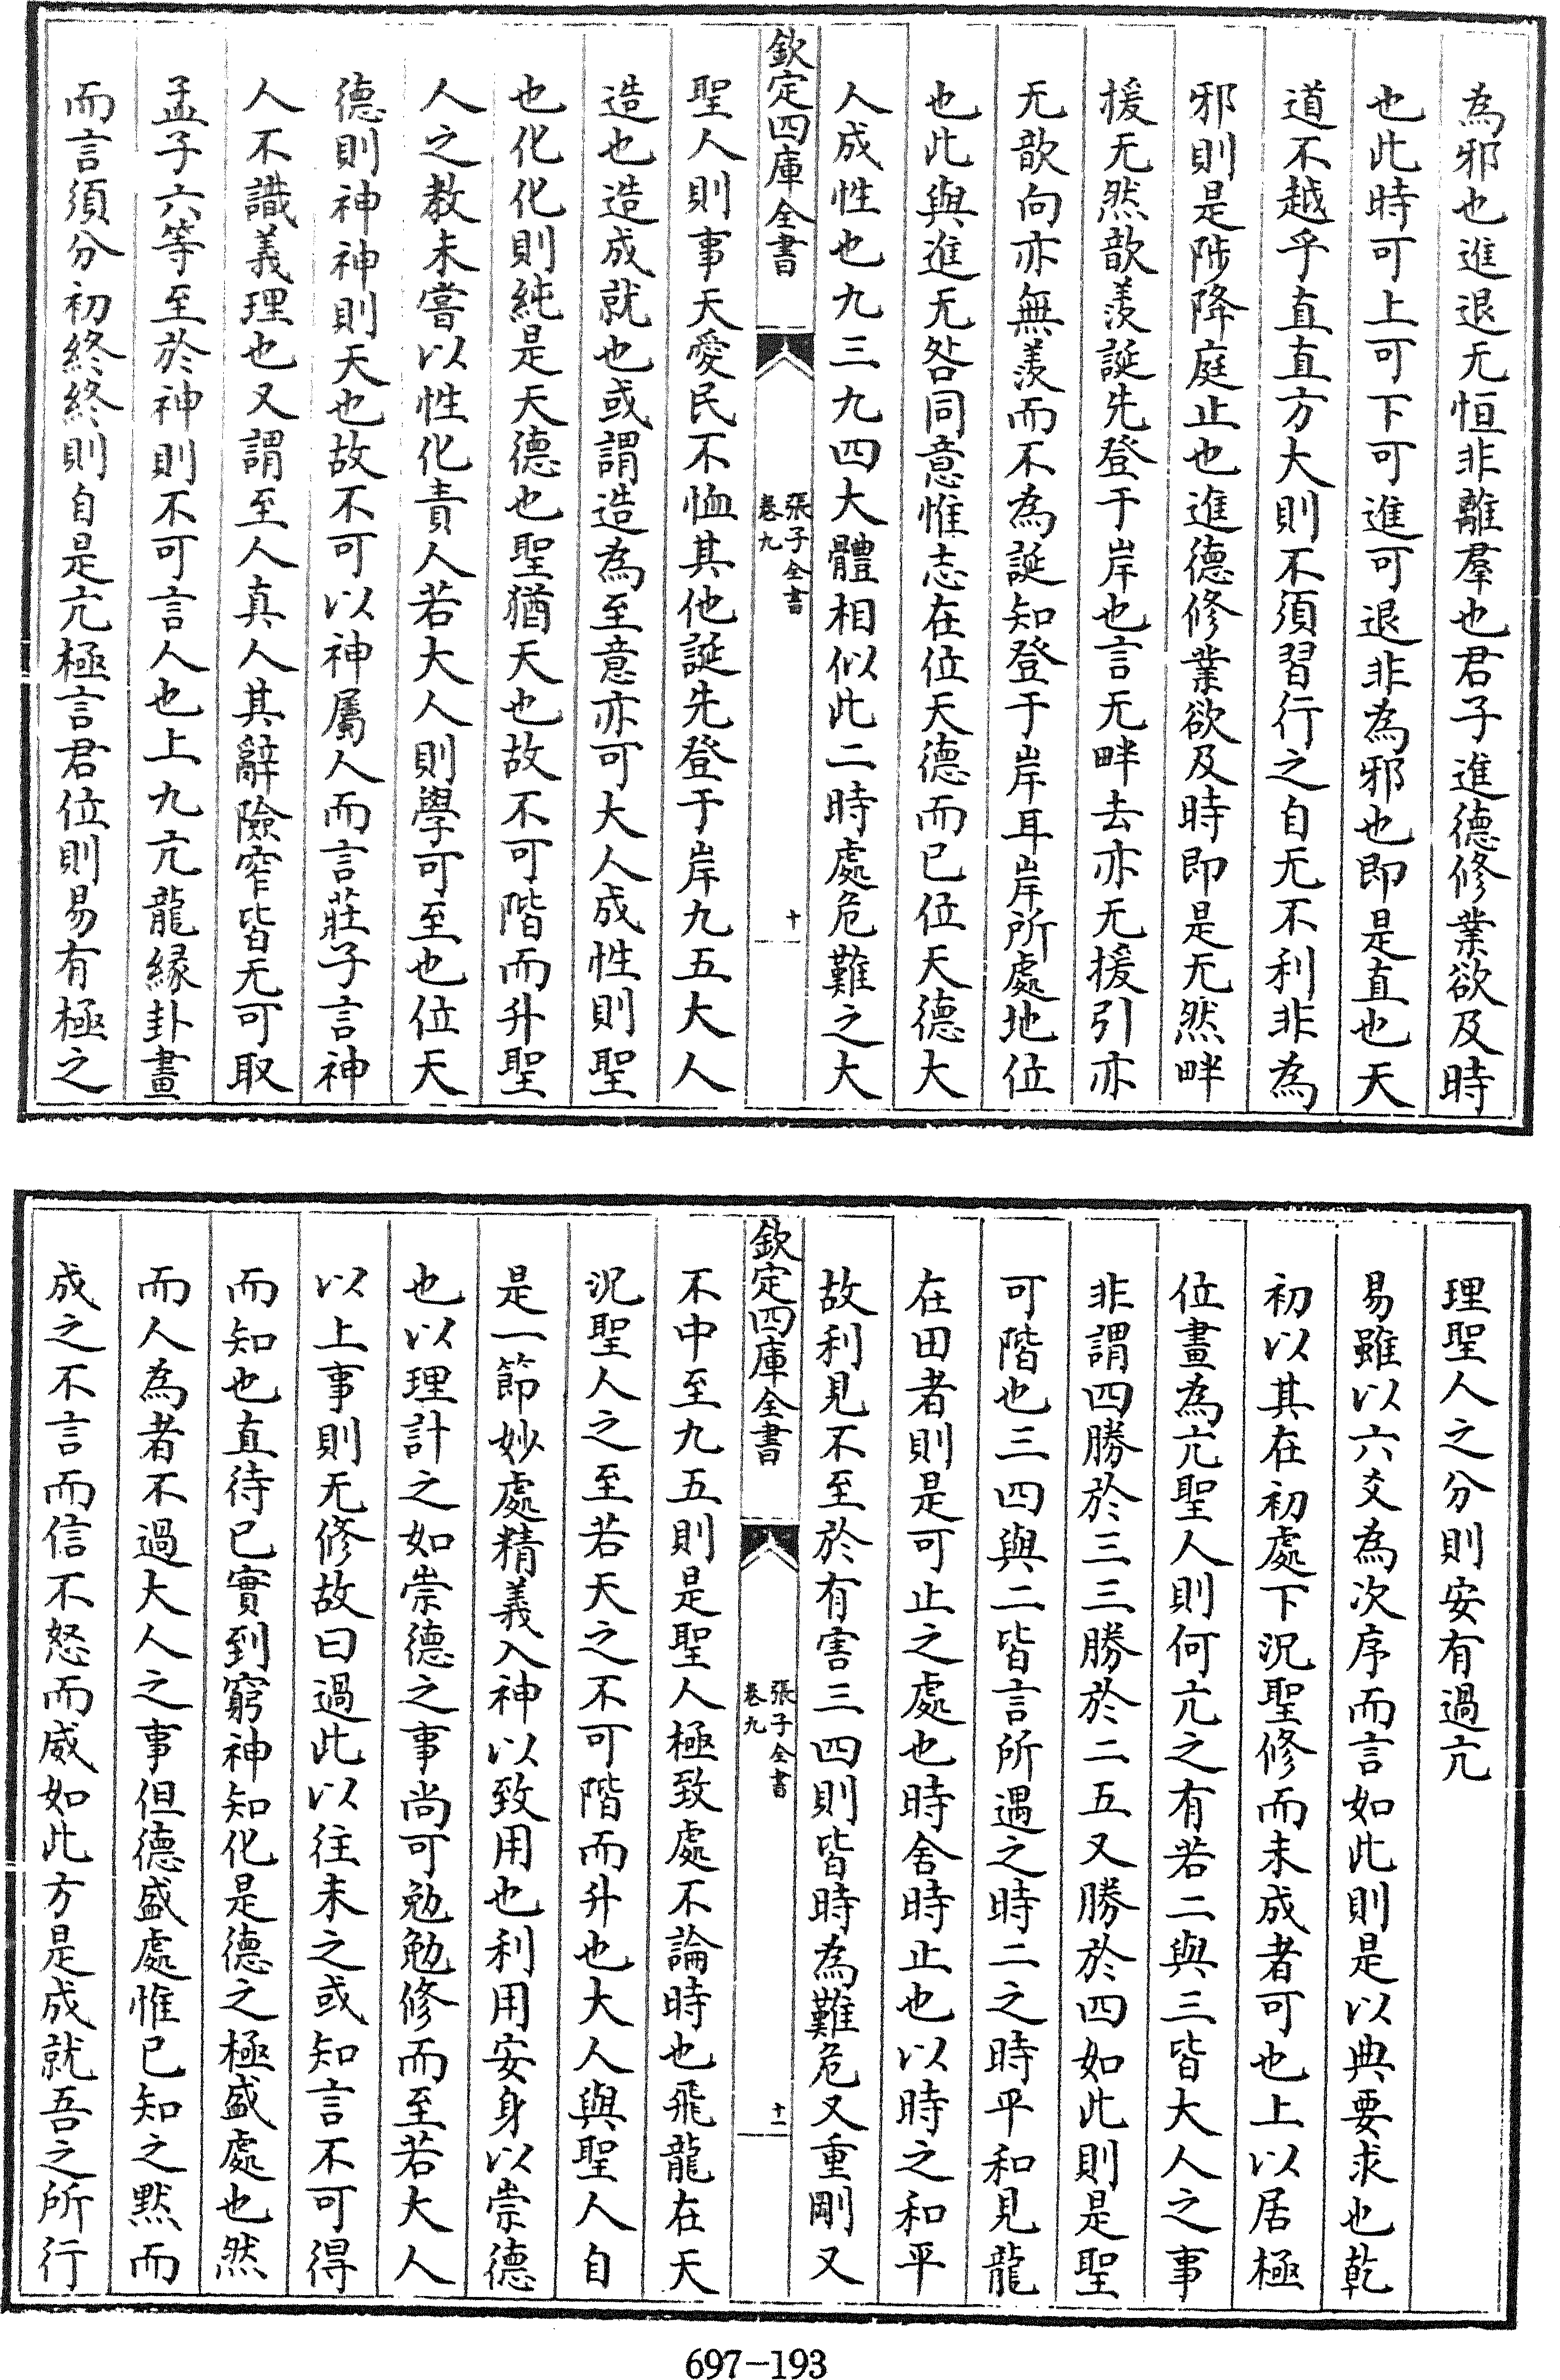 為邪也進退无恒非離羣也君子進德修業欲及時
也此時可上可下可進可退非為邪也即是直也天
道不越乎直直方大則不須習行之自无不利非為
邪則是陟降庭止也進德修業欲及時即是无然畔
援无然歆羨誕先登于岸也言无畔去亦无援引亦
无歆向亦無羨而不為誕知登于岸耳岸所處地位
也此與進无咎同意惟志在位天德而已位天德大
人成性也九三九四大體相似此二時處危難之大
欽定四庫全書
張子全書
卷九
十
聖人則事天愛民不恤其他誕先登于岸九五大人
造也造成就也或謂造為至意亦可大人成性則聖
也化化則純是天德也聖猶天也故不可階而升聖
人之教未嘗以性化責人若大人則學可至也位天
德則神神則天也故不可以神屬人而言莊子言神
人不識義理也又謂至人真人其辭險窄皆无可取
孟子六等至於神則不可言人也上九亢龍緣卦畫
而言須分初終終則自是亢極言君位則易有極之
理聖人之分則安有過亢
易雖以六爻為次序而言如此則是以典要求也乾
初以其在初處下況聖修而未成者可也上以居極
位畫為亢聖人則何亢之有若二與三皆大人之事
非謂四勝於三三勝於二五又勝於四如此則是聖
可階也三四與二皆言所遇之時二之時平和見龍
在田者則是可止之處也時舍時止也以時之和平
故利見不至於有害三四則皆時為難危又重剛又
欽定四庫全書
張子全書
卷九
十一
不中至九五則是聖人極致處不論時也飛龍在天
況聖人之至若天之不可階而升也大人與聖人自
是一節妙處精義入神以致用也利用安身以崇德
也以理計之如崇德之事尚可勉勉修而至若大人
以上事則无修故曰過此以往未之或知言不可得
而知也直待已實到窮神知化是德之極盛處也然
而人為者不過大人之事但德盛處惟已知之默而
成之不言而信不怒而威如此方是成就吾之所行
697-193